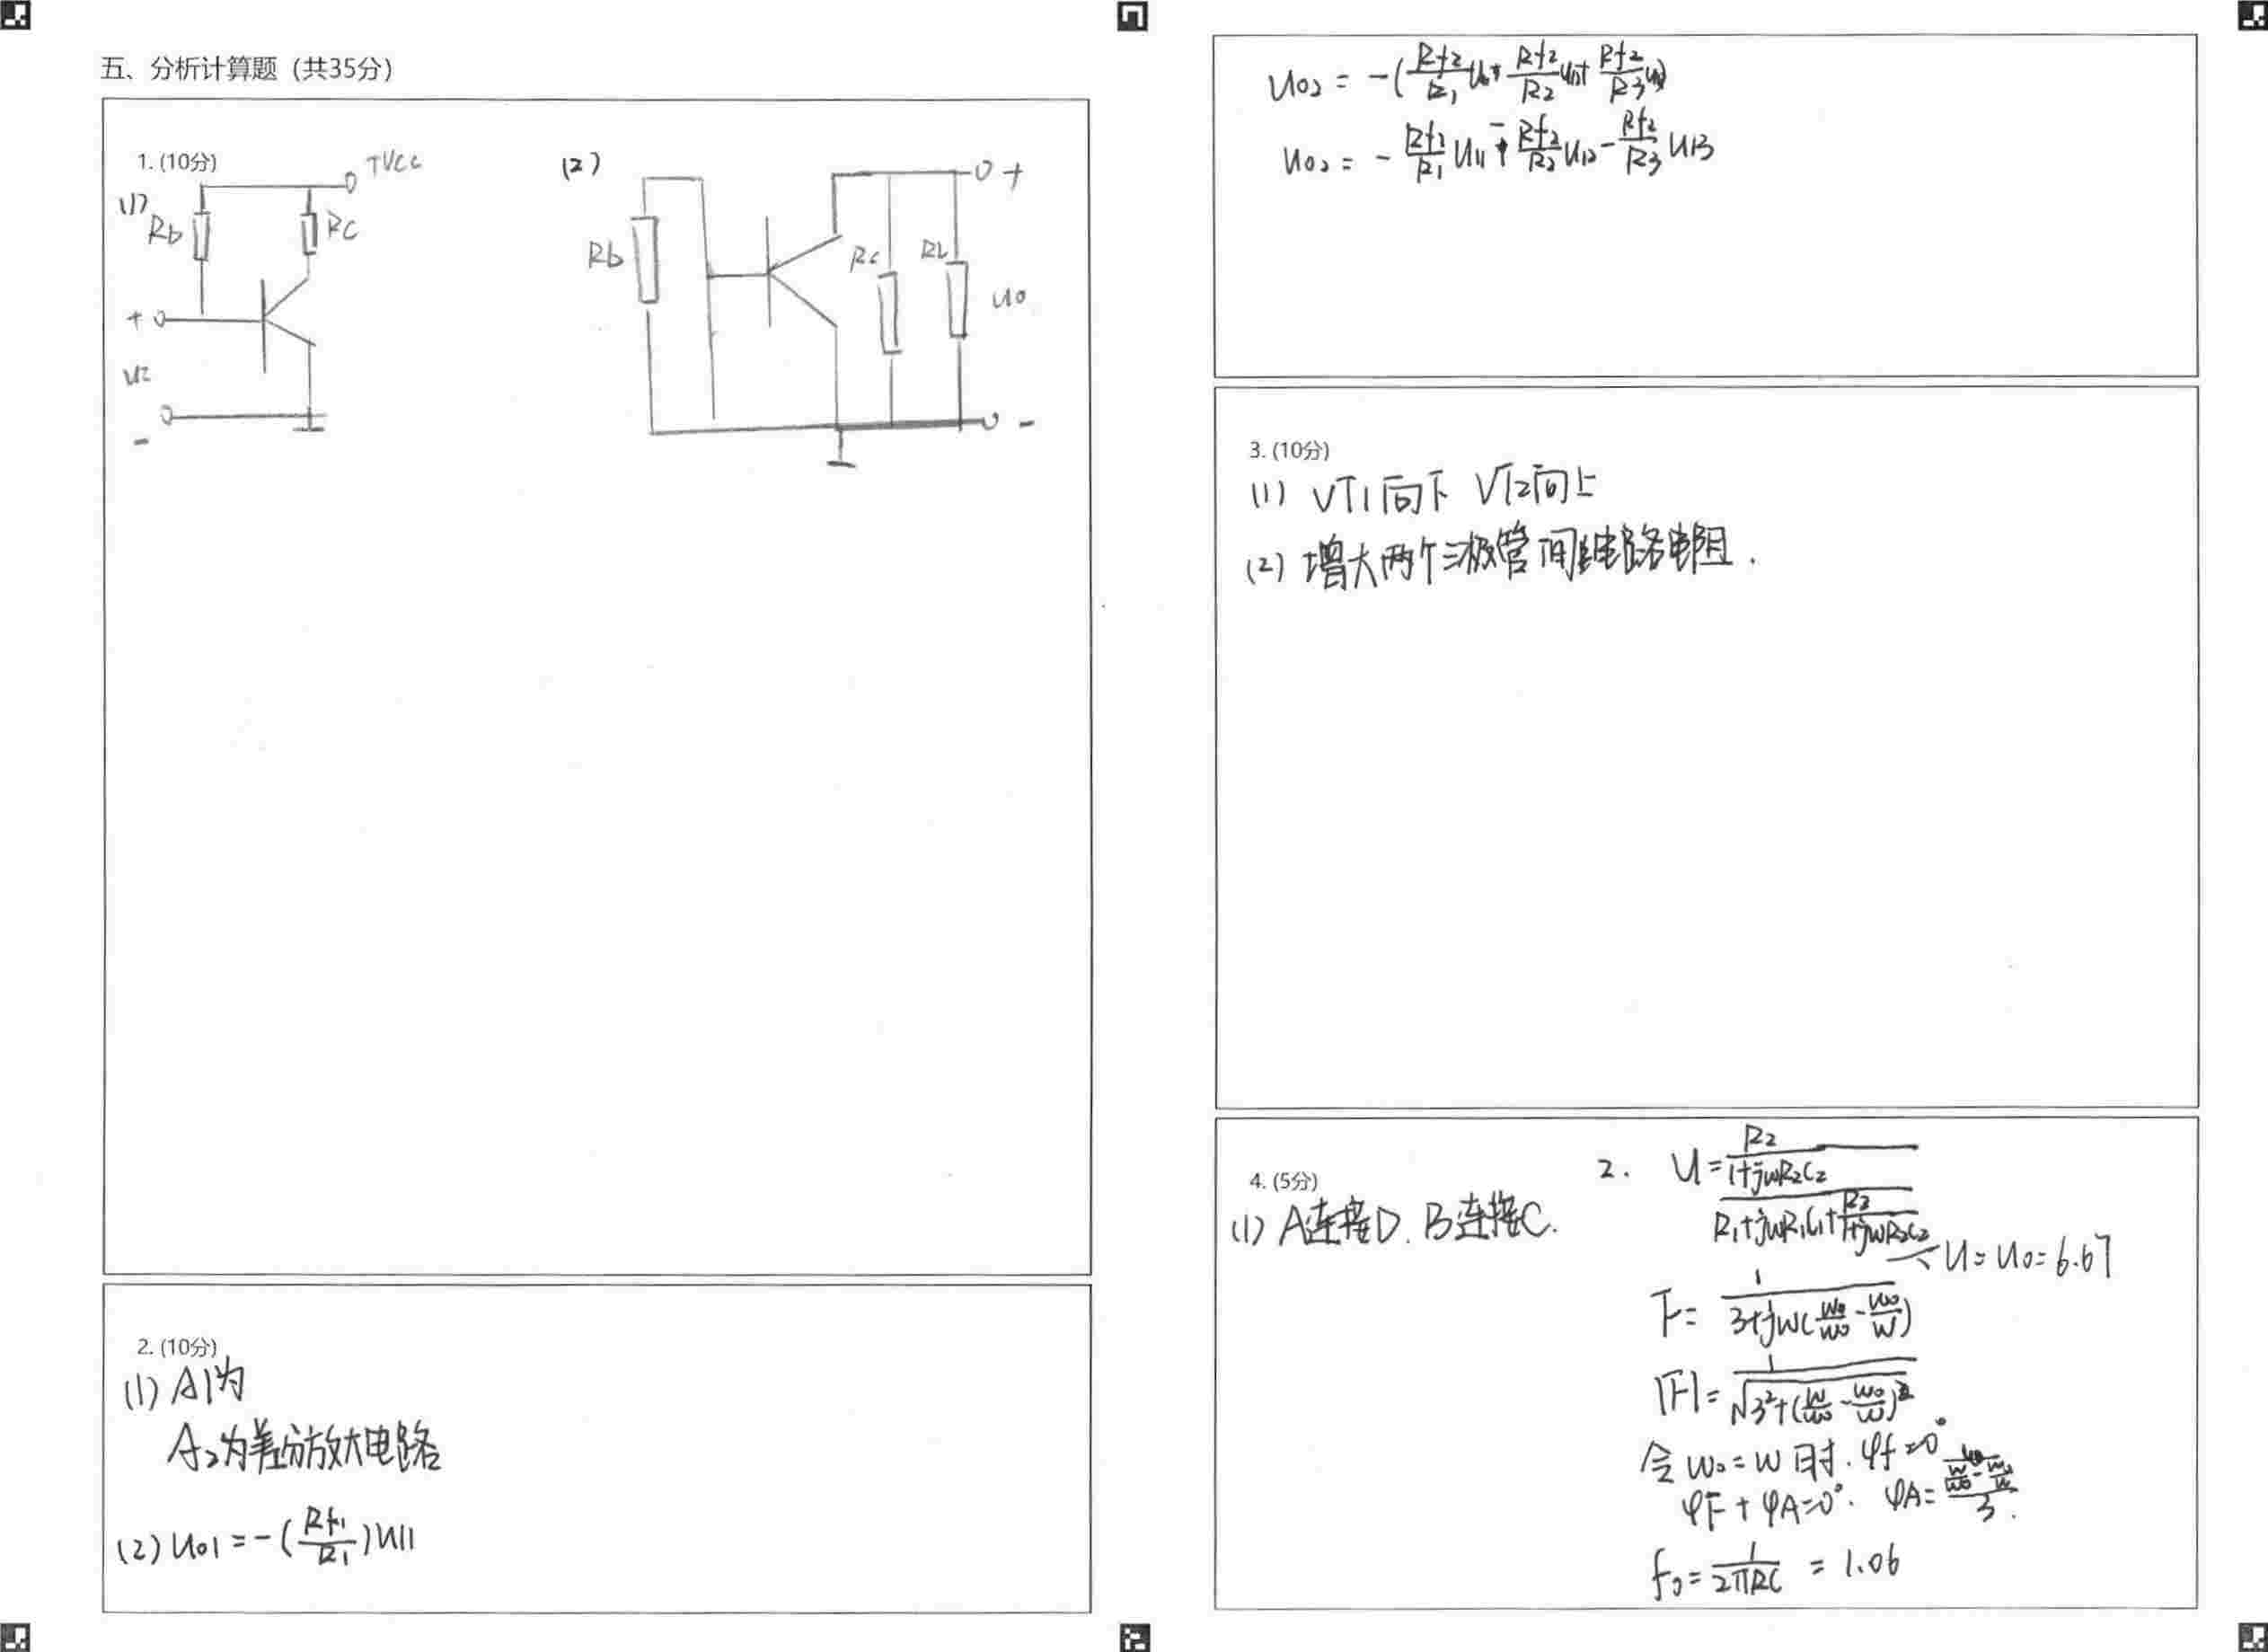 五、分析计算题（共35分）
1. (10分)
(1)
TVCC
Rb
RC
+
-
(2)
+
Rb
Rc
RL
uo
-
2. (10分)
(1) A1为
A2为差分放大电路
(2) uo1 = -(Rf1/R1)uI1
uo2 = -(Rf2/R1 + Rf2/R2 uI1 + Rf2/R3)
uo2 = - uI1 - Rf2/R2 uI2 - Rf2/R3 uI3
3. (10分)
(1) VT1向下 VT2向上
(2) 增大两个三极管间电路电阻.
4. (5分)
(1) A连接D. B连接C.
2. U = (R2/(1+jωR2C2))/(R1+jωR1C1+R2/(1+jωR2C2))
U = U0 = 6.67
F = 1/(3+jω(ω/ω0 - ω0/ω))
|F| = 1/√(3²+(ω/ω0 - ω0/ω)²)
令ω0=ω时. φf=0°
φF + φA=0°. φA= (ω/ω0 - ω0/ω)/3.
f0 = 1/2πRC = 1.06